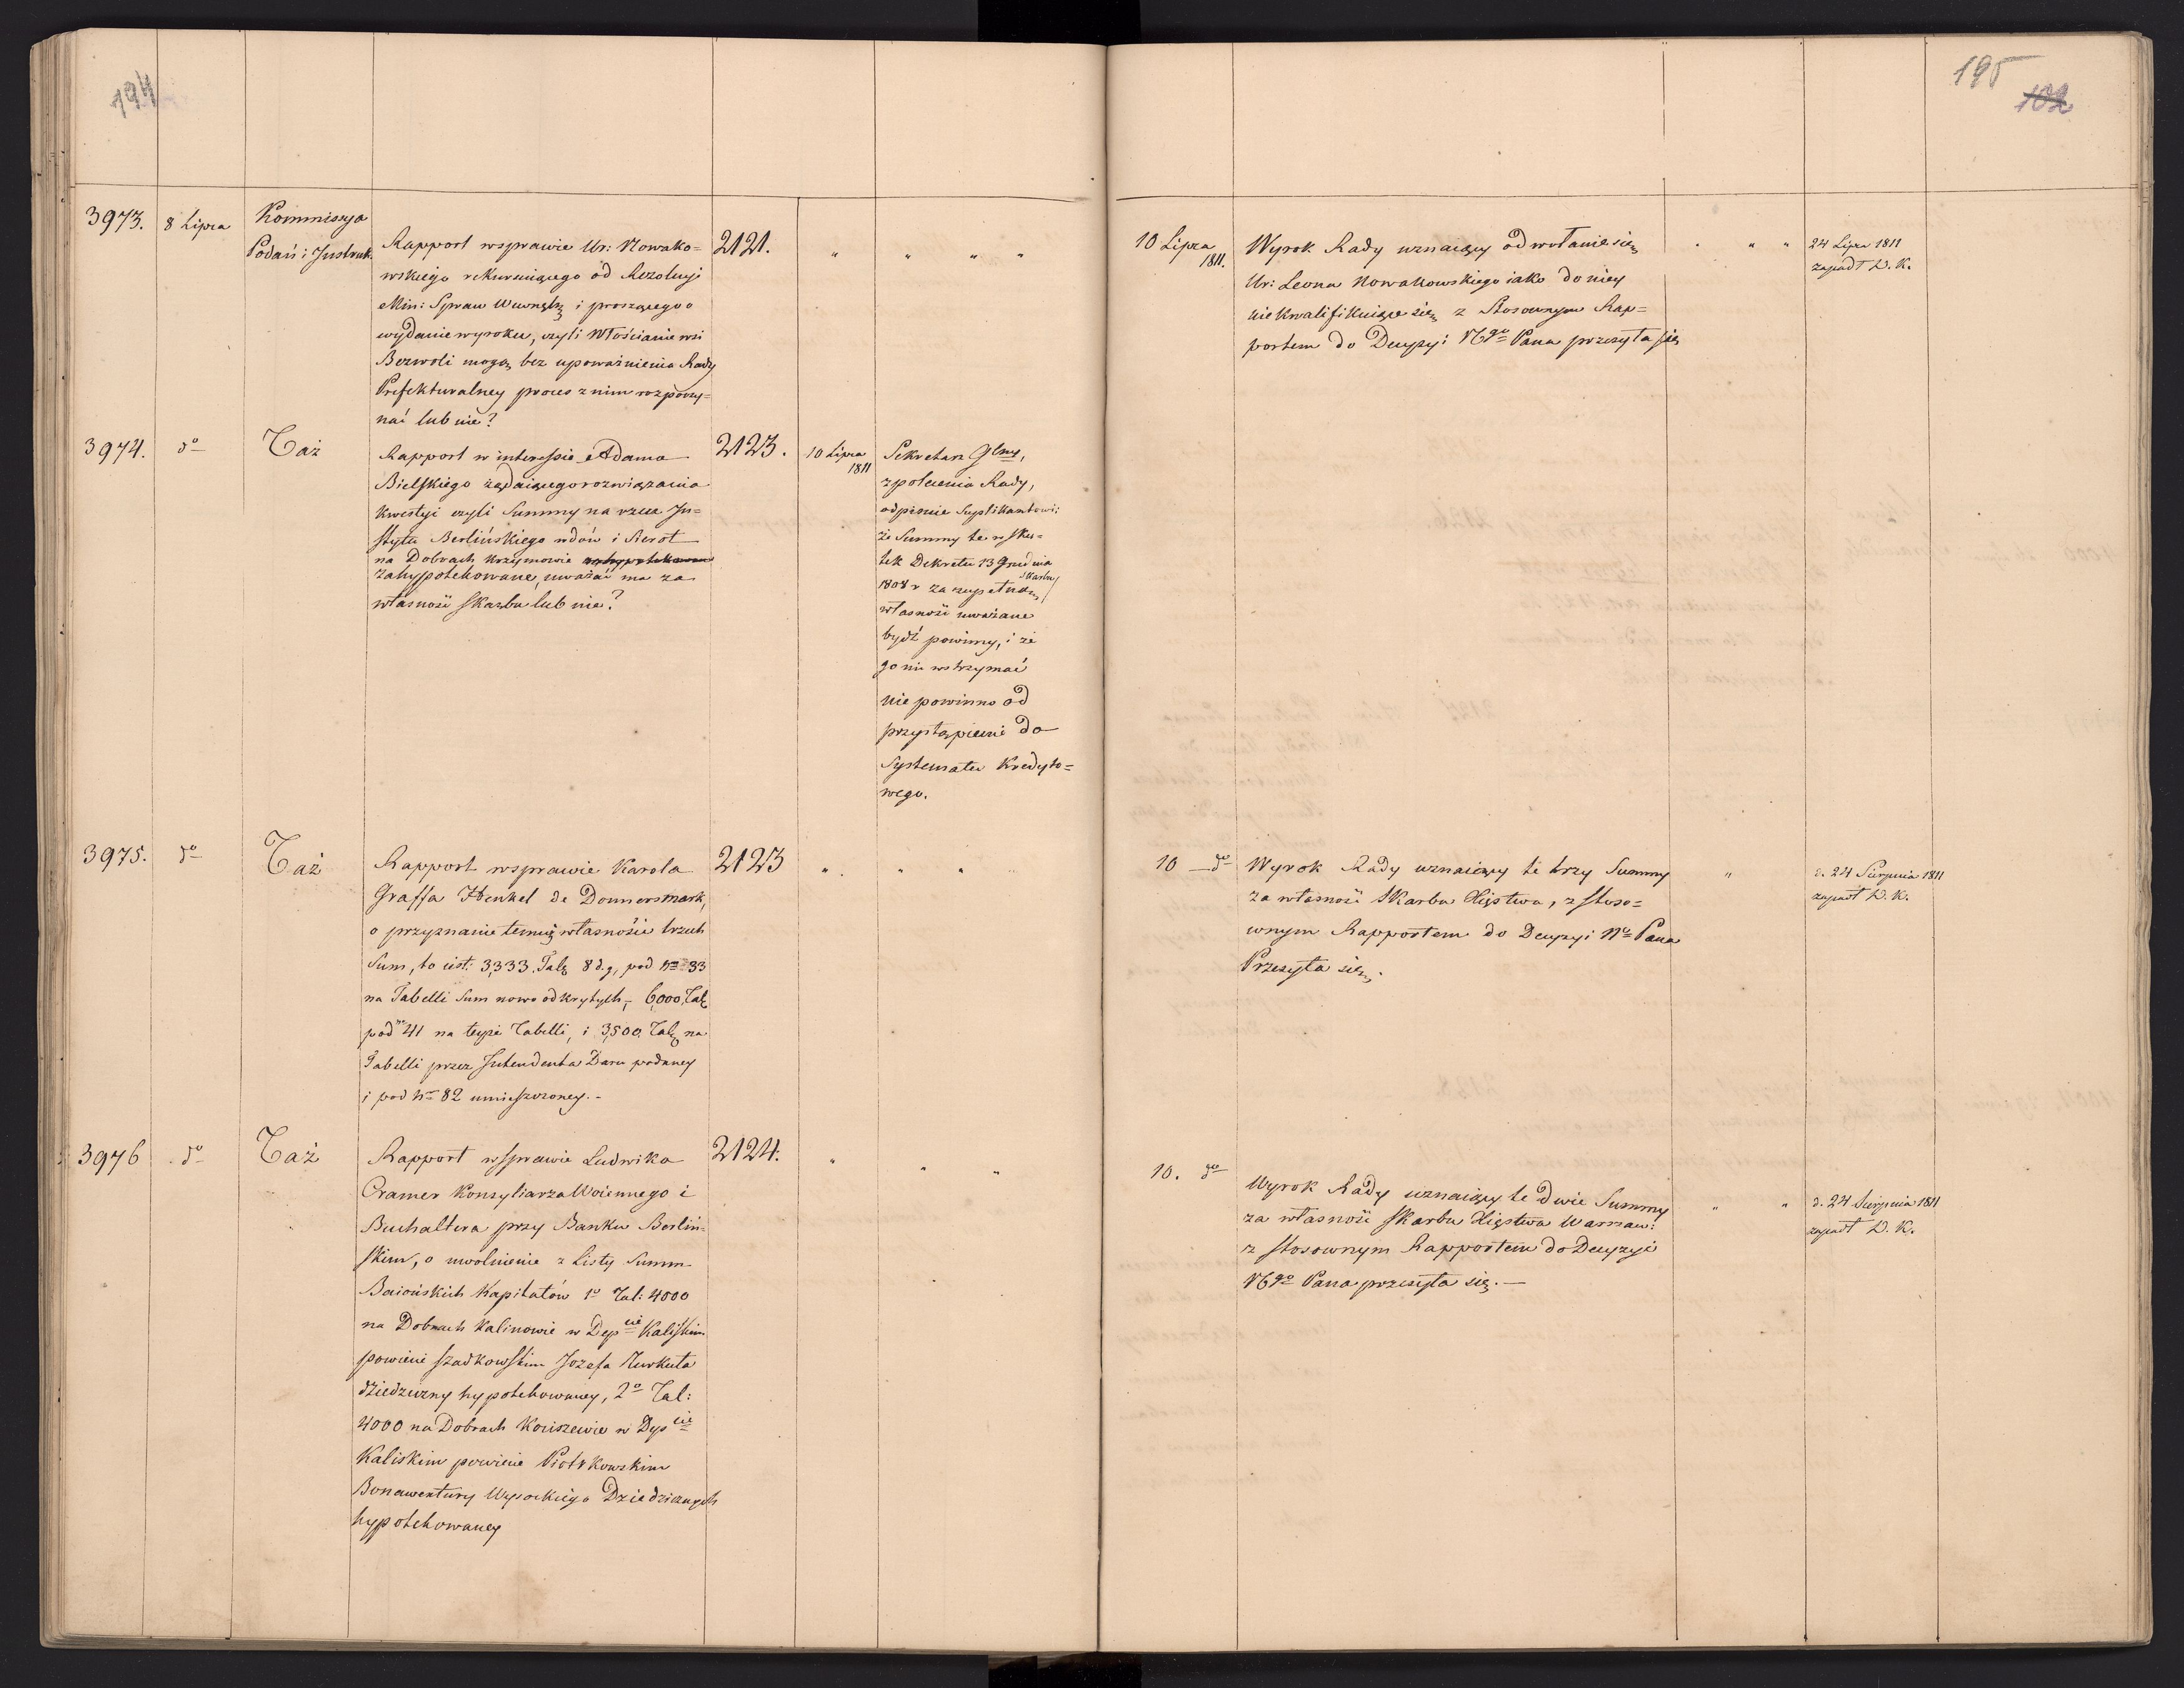 194
3973.
8 Lipca
Kommissya
Podań i Instruk.
Rapport wsprawie Ur: Nowako=
wskiego rekuruiącego od Rezolucyi
Min: Spraw Wewnętrz i proszącego o
wydanie wyroku, czyli Włościanie wsi
Bezwoli mogą bez upoważnienia Rady
Prefekturalney proces z nim rozpoczy=
nać lub nie?
2121.
" " " "
3974.
do
Taż
Rapport w interessie Adama
Bielskiego żądaiącego rozwiązania
kwestyi czyli Summy na rzecz In=
stytu Berlińskiego wdów i Sierot
na Dobrach Krzymowie zahypotekowane
zahypotekowane, uważać ma za
własność skarbu lub nie?
2123.
10 Lipca
1811
Sekretarz Glny,
z polecenia Rady,
odpisuie Suplikantowi:
że Summy te w sku=
tek Dekretu 13 Grudnia
1808 r za zupełną skarbu
własność uważane
bydź powinny, i że
go nic wstrzymać
nie powinno od
przystąpienia do
Systematu Kredyto=
wego.
3975.
do
Taż
Rapport wsprawie Karola
Graffa Henkel de Donnersmark,
o przyznanie temuż własności trzech
Sum, to iest: 3,333. Tal 8 d.g., pod No 33
na Tabelli Sum nowo odkrytych, - 6,000 Tal
pod No 41 na teyże Tabelli, i 3,500 Tal na
Tabelli przez Intendenta Daru podaney
i pod No 82 umieszczoney. -
2123
" " "
3976
do
Taż
Rapport wsprawie Ludwika
Cramer Konsyliarza Woiennego i
Buchaltera przy Banku Berliń=
skim, o uwolnienie z Listy Summ
Baiońskich Kapitałów 1o Tal: 4000
na Dobrach Kalinowie w Depcie Kaliskim
powiecie szadkowskim Jozefa
dziedziczny hypotekowaney, 2o Tal:
4000 na Dobrach w Depcie
Kaliskim powiecie Piotrkowskim
Bonawentury Wysockiego Dziedzicznych
hypotekowaney
2124.
" " "
195
102
10 Lipca
1811.
Wyrok Rady uznaiący odwołanie się
Ur: Leona Nowakowskiego iako do niey
niekwalifikuiące się, z Stosownym Rap=
portem do Decyzyi Nego Pana przesyła się
" " "
24 Lipca 1811
zapadł D. K.
10 do
Wyrok Rady uznaiący te trzy Summy
za własność Skarbu Xięstwa, z stoso=
wnym Rapportem do Decyzyi No Pana
Przesyła się.
"
d. 24 Sierpnia 1811
zapadł D. K.
10. do
Wyrok Rady uznaiący te dwie Summy
za własność skarbu Xięstwa Warszaw:
z stosownym Rapportem do Decyzyi
Nego Pana przesyła się. -
" "
d. 24 Sierpnia 1811
zapadł D. K.